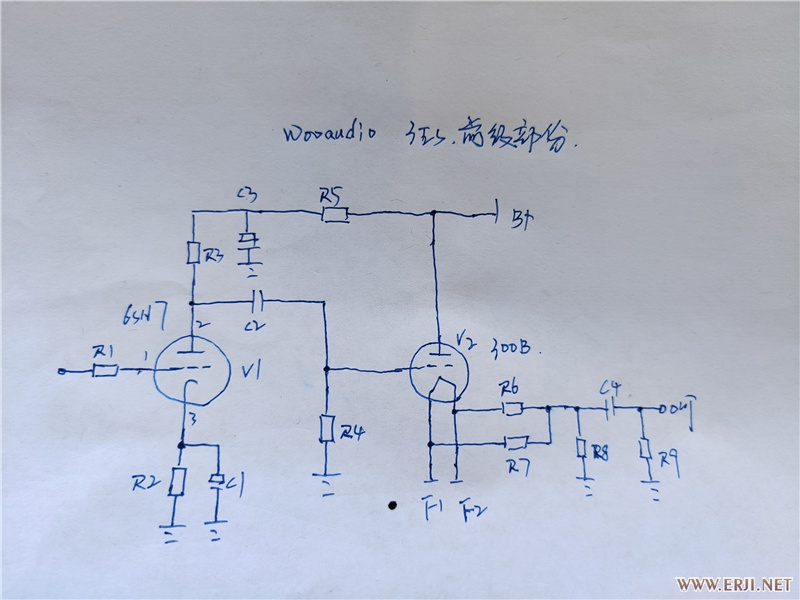 wooaudio 3ES.高级部份.
C3
R5
B+
R3
6SN7
2
C2
V2 300B.
R1
1
V1
R6
C4
out
3
R4
R7
R8
R9
R2
C1
F1 F2
WWW.ERJI.NET